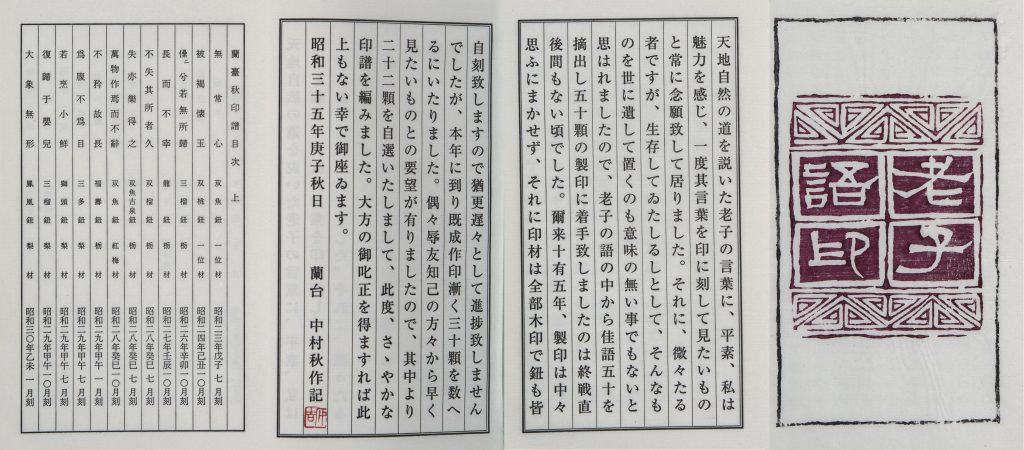 老子
語印
天地自然の道を説いた老子の言葉に、平素、私は
魅力を感じ、一度其言葉を印に刻して見たいもの
と常に念願致して居りました。それに、微々たる
者ですが、生存してゐたしるしとして、そんなも
のを世に遺して置くのも意味の無い事でもないと
思はれましたので、老子の語の中から佳語五十を
摘出し五十顆の製印に着手致しましたのは終戦直
後間もない頃でした。爾来十有五年、製印は中々
思ふにまかせず、それに印材は全部木印で鈕も皆
自刻致しますので猶更遅々として進捗致しません
でしたが、本年に到り既成作印漸く三十顆を数へ
るにいたりました。偶々辱友知己の方々から早く
見たいものとの要望が有りましたので、其中より
二十二顆を自選いたしまして、此度、さゝやかな
印譜を編みました。大方の御叱正を得ますれば此
上もない幸で御座ゐます。
昭和三十五年庚子秋日 蘭台 中村秋作記
蘭臺秋印譜目次 上
無常心 双魚鈕 一位材 昭和二三年戊子七月刻
被褐懐玉 双桃鈕 一位材 昭和二四年己丑一〇月刻
儽々兮若無所歸 三榴鈕 栃材 昭和二六年辛卯一〇月刻
長而不宰 龍鈕 栃材 昭和二七年壬辰一〇月刻
不失其所者久 双榴鈕 栃材 昭和二八年癸巳七月刻
失亦樂得之 双魚古泉鈕 栃材 昭和二八年癸巳七月刻
萬物作焉而不辭 双魚鈕 紅梅材 昭和二八年癸巳一〇月刻
不矜故長 福壽鈕 栃材 昭和二九年甲午一月刻
為腹不為目 三多鈕 梨材 昭和二九年甲午七月刻
若烹小鮮 獅頭鈕 梨材 昭和二九年甲午七月刻
復歸于嬰兒 三榴鈕 梨材 昭和二九年甲午一〇月刻
大象無形 鳳凰鈕 梨材 昭和三〇年乙未一月刻